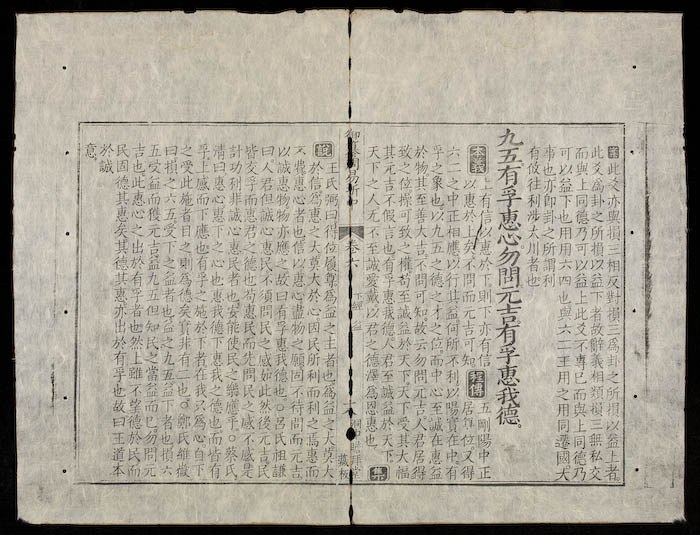 案此爻亦與損三相反對損三爲卦之所損以益上者
此爻爲卦之所損以益下者故辭義相類損三無私交
而與上同德乃可以益上此爻不專已而與上同德乃
可以益下也用用六四也與六二王用之用同遷國大
事也亦即卦之所謂利
有攸往利涉大川者也
九五有孚惠心勿問元吉有孚惠我德
本義上有信以惠於下則下亦有信
以惠於上矣不問而元吉可知
程傳五剛陽中正
居尊位又得
六二之中正相應以行其益何所不利以陽實在中有
孚之象也以九五之德之才之位而中心至誠在惠益
於物其至善大吉不問可知故云勿問元吉人君居得
致之位操可致之權苟至誠益於天下天下受其大福
其元吉不假言也有孚惠我德人君至誠益於天下
天下之人无不至誠愛戴以君之德澤爲恩惠也
集
御纂周易折中
卷六
下經 益
藏板
說王氏弼曰得位履尊爲益之主者也爲益之大莫大
於信爲惠之大莫大於心因民所利而利之焉惠而
不費惠心者也信以惠心盡物之願固不待問而元吉
以誠惠物物亦應之故曰有孚惠我德也○呂氏祖謙
曰人君但誠心惠民不須問民之感如此然後元吉民
皆交孚而惠君之德也苟惠民而先問民之感不感是
計功利非誠心惠民者也安能使民之樂應乎○蔡氏
清曰惠心惠下之心也惠我德下惠我之德也而皆有
孚上感而下應也有孚之施於下者在我只爲心自下
之受此施者目之則爲德矣實非有二也○鄭氏維嶽
曰損之六五受下之益者也益之九五益下者也損六
五受益而獲元吉益九五但知民之當益而已勿問元
吉也此惠心之出於有孚者也然上雖不望德於民而
民固德其惠矣其德其惠亦出於有孚也故曰王道本
於誠
意